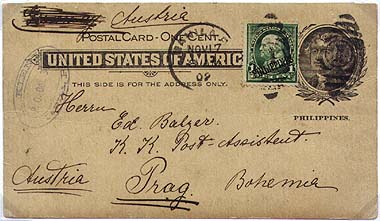 Austria
POSTAL CARD - ONE CENT.
UNITED STATES OF AMERICA
THIS SIDE IS FOR THE ADDRESS ONLY.
NOV 17
02
PHILIPPINES.
Herrn
Ed. Balzer.
K. K. Post-Assistent.
Austria Prag, Bohemia